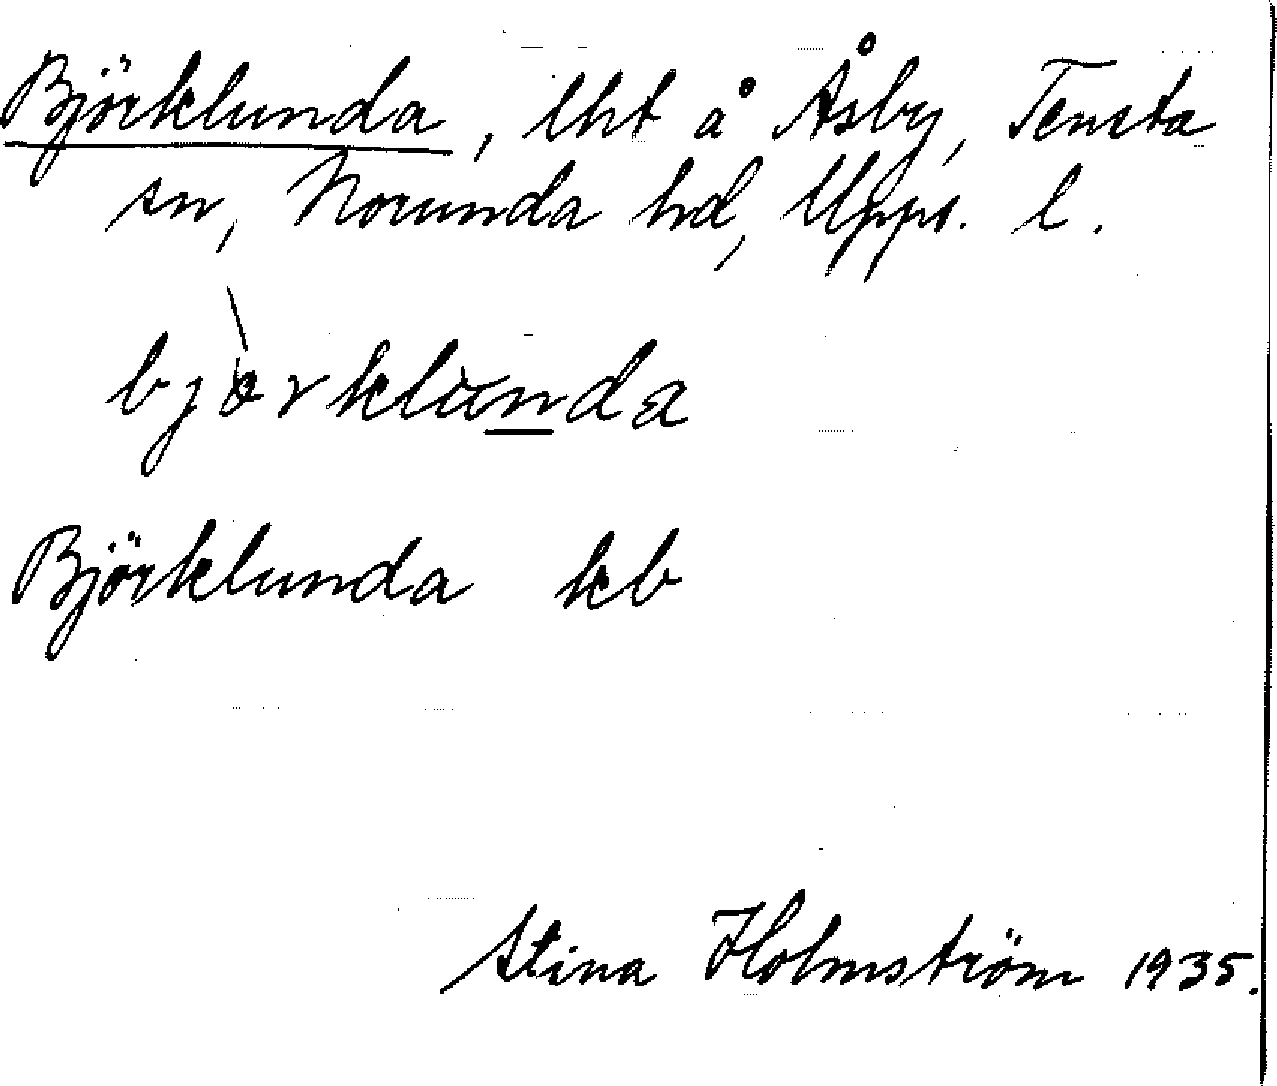 Björklunda, lht å Åsby, Tensta
sn, Norunda hd, Upps. l.
bjòrklùnda
Björklunda kb
Stina Holmström 1935.